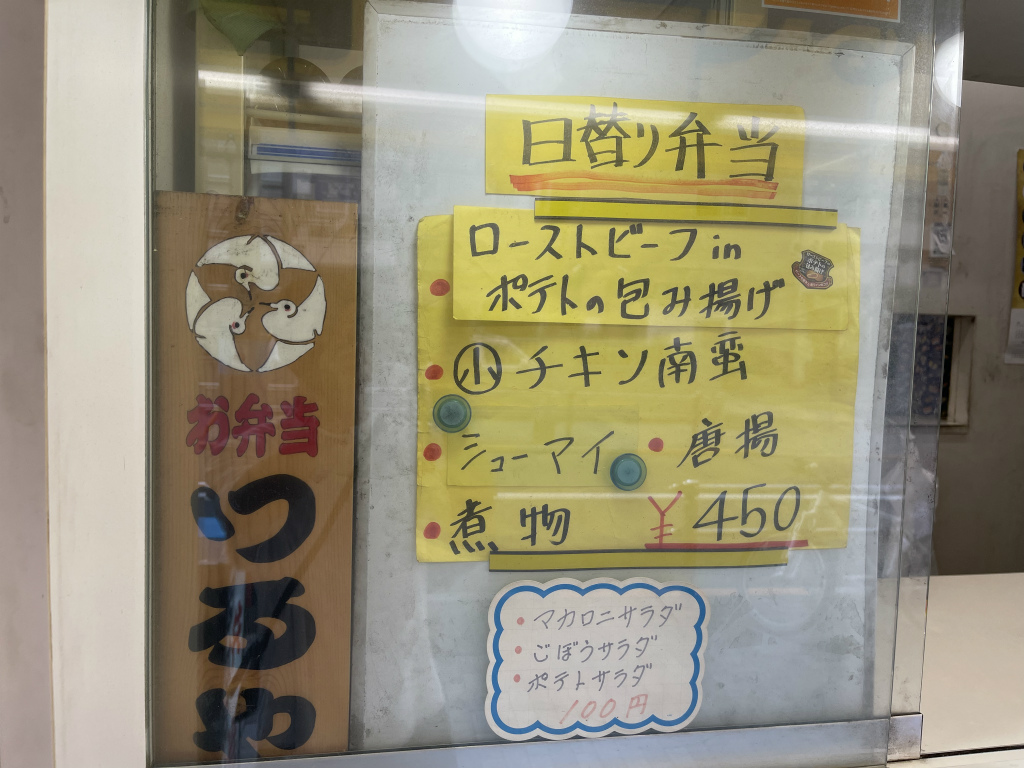 お弁当
つるや
日替り弁当
ローストビーフin
ポテトの包み揚げ
小 チキン南蛮
シューマイ ・唐揚
煮物 ¥450
・マカロニサラダ
・ごぼうサラダ
・ポテトサラダ
100円